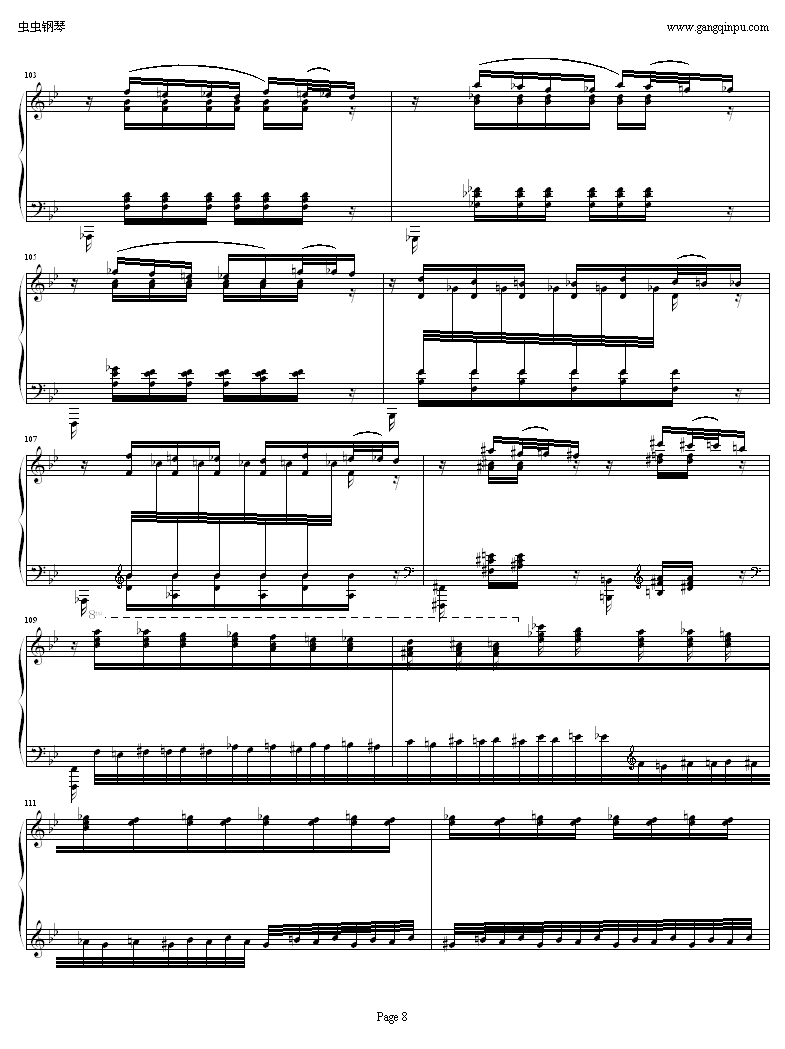 虫虫钢琴
www.gangqinpu.com
103
105
107
8va
109
111
Page 8